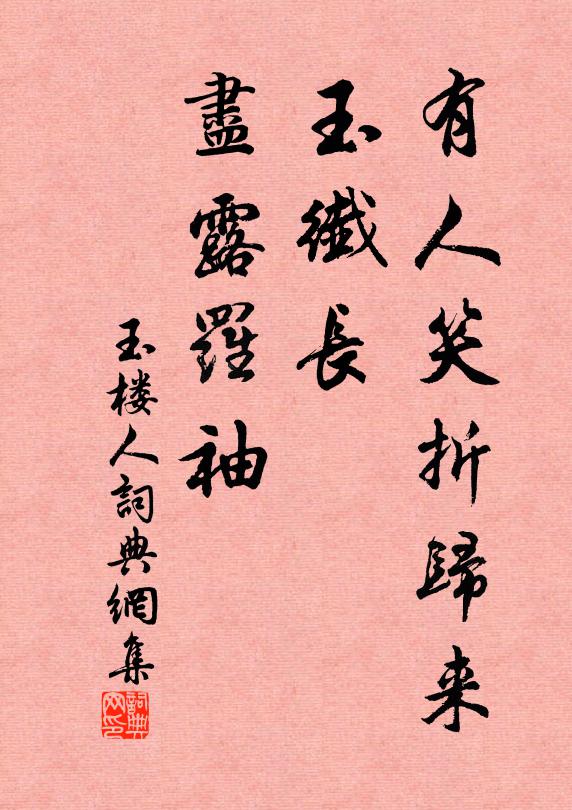 有人笑折歸来
玉纖長
盡露羅袖
玉楼人詞典網集
詞典
网印